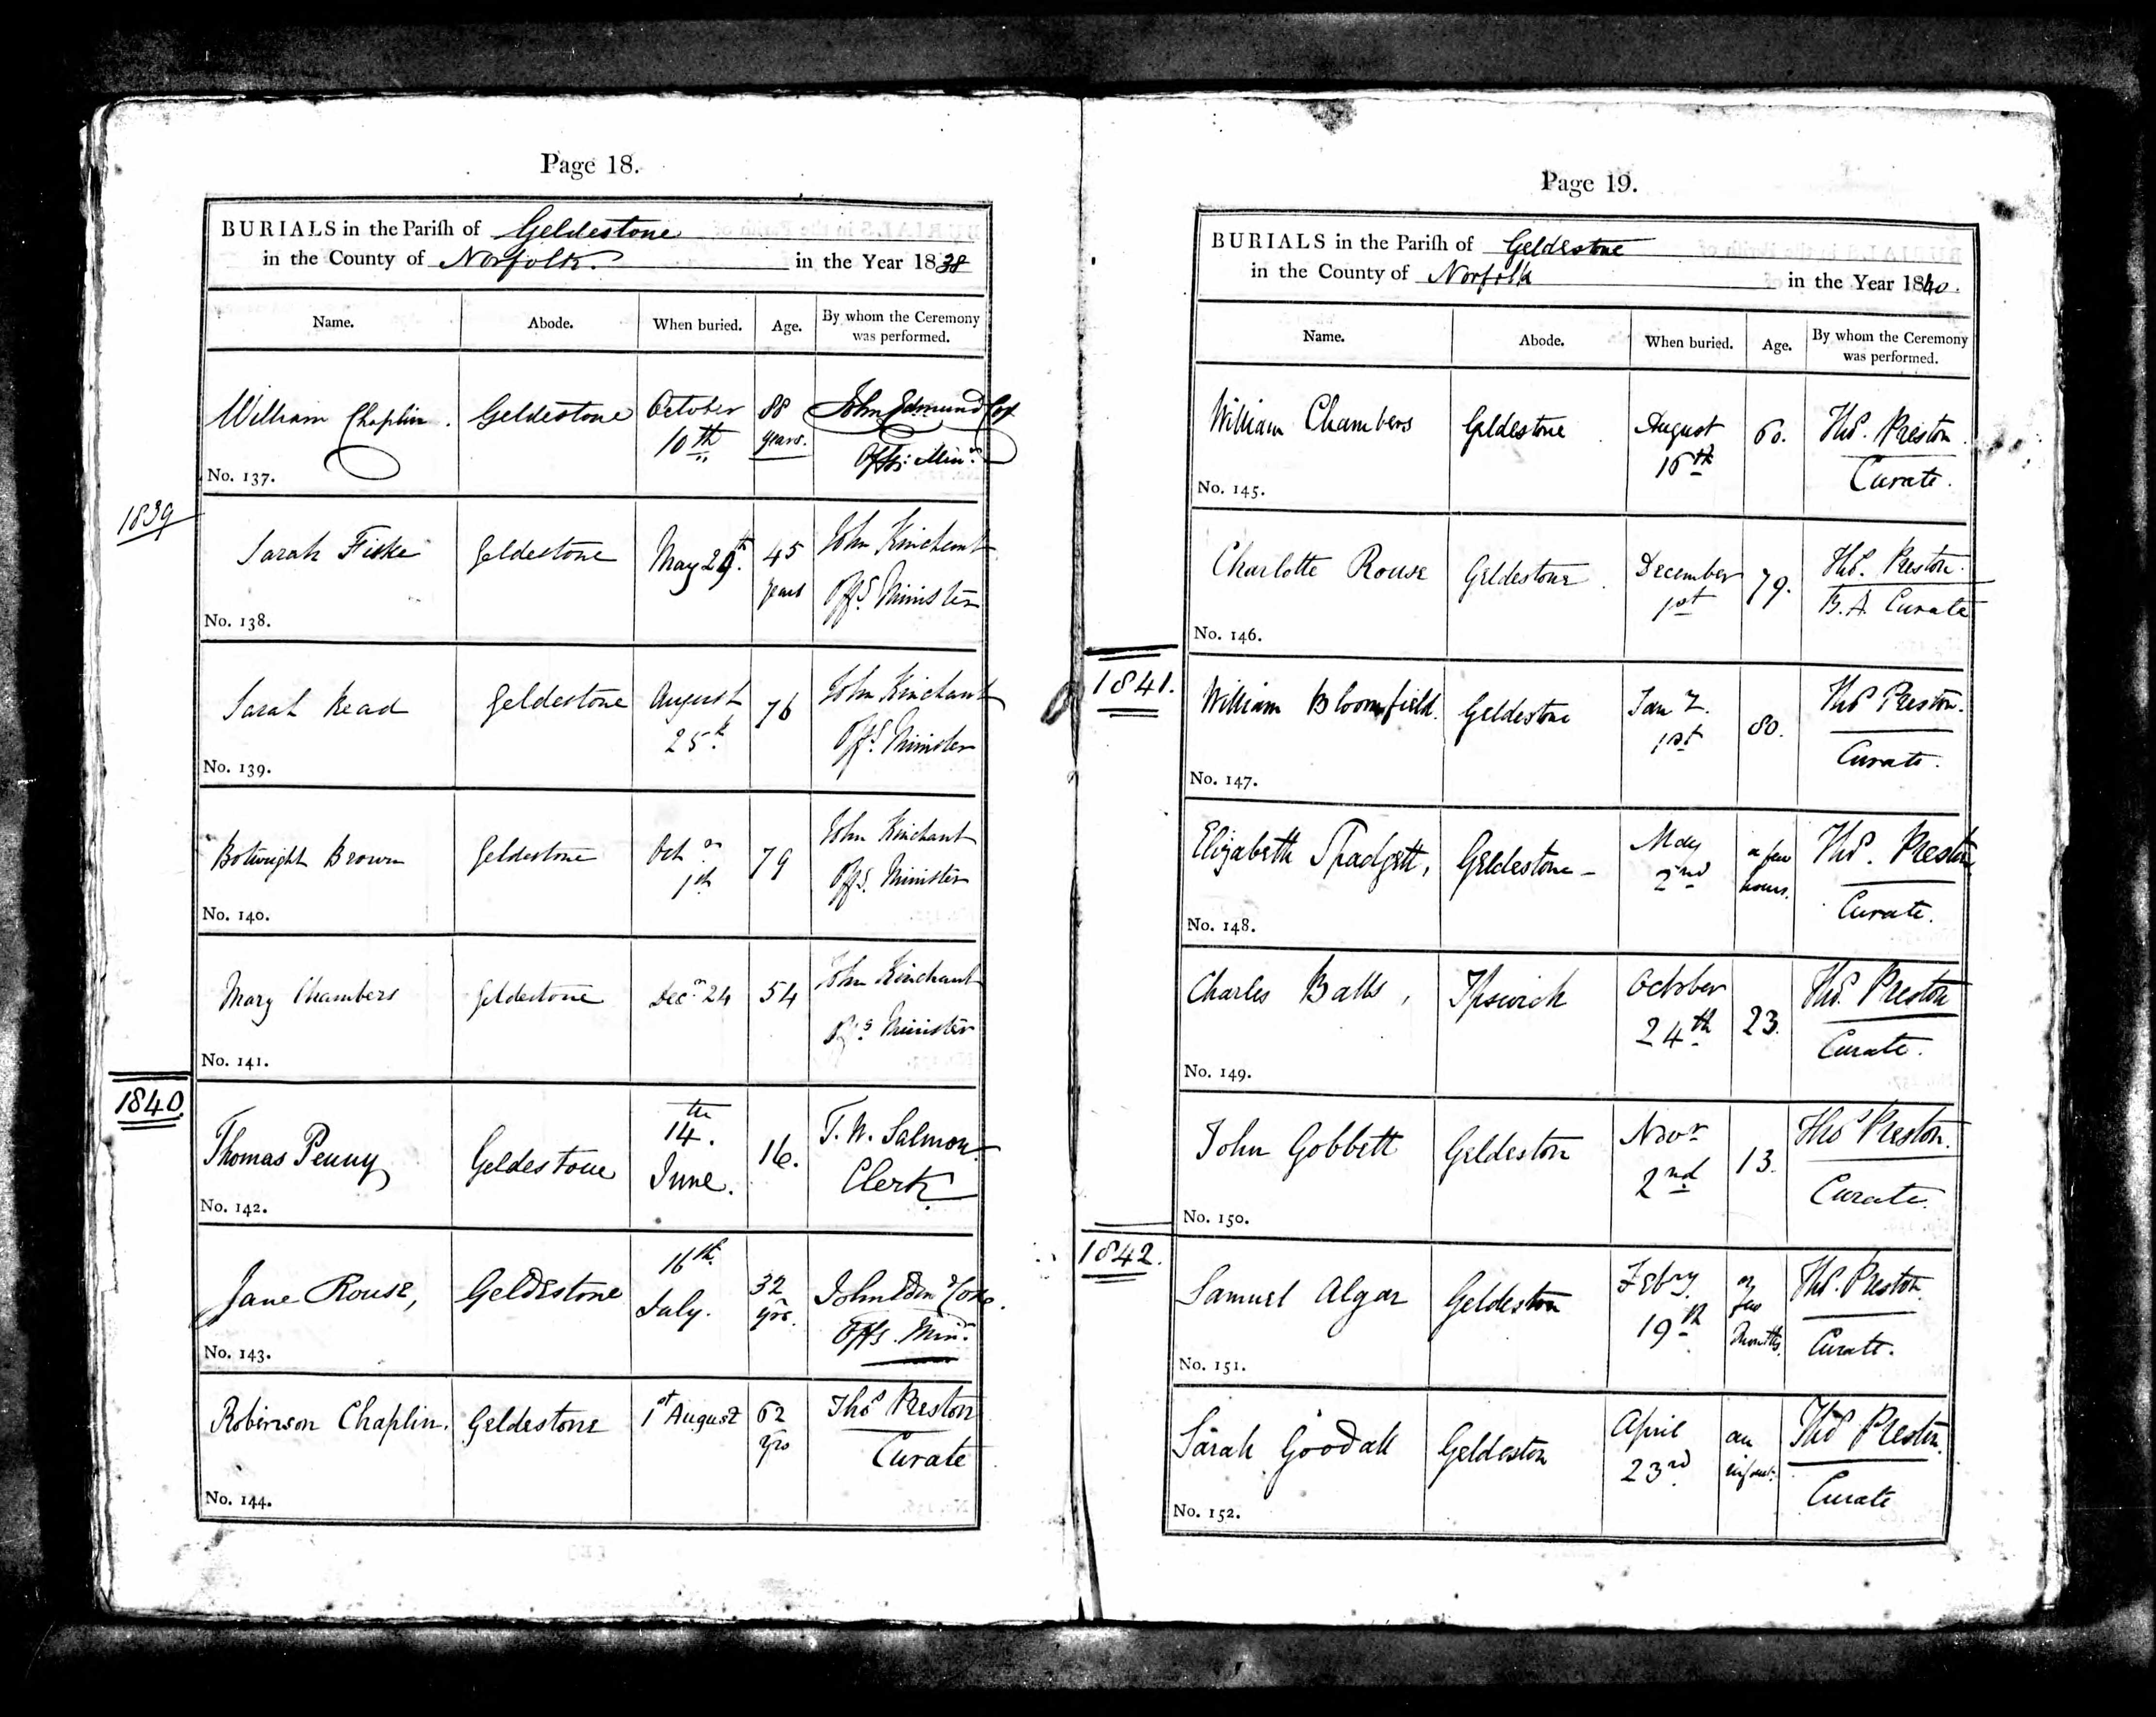 Page 18.
BURIALS in the Parish of Geldestone
in the County of Norfolk. in the Year 1838
Name. Abode. When buried. Age. By whom the Ceremony was performed.
William Chaplin. Geldestone October 10th 88 years. John Edmund Cox Offg: Minr.
No. 137.
1839
Sarah Fiske Geldestone May 29th. 45 years John Kinchant Offg. Minister
No. 138.
Sarah Read Geldestone August 25th 76 John Kinchant Offg. Minister
No. 139.
Botwright Brown Geldestone Octr 1st 79 John Kinchant Offg. Minister
No. 140.
Mary Chambers Geldestone Decr 24 54 John Kinchant Offg Minister
No. 141.
1840.
Thomas Penny Geldestone 14th. June. 16. T. W. Salmon Clerk
No. 142.
Jane Rouse, Geldestone 16th July. 32 yrs. John Edmd Cox. Offg. Minr.
No. 143.
Robinson Chaplin. Geldestone 1st August 62 yrs Thos Preston Curate
No. 144.
Page 19.
BURIALS in the Parish of Geldestone
in the County of Norfolk in the Year 1840.
Name. Abode. When buried. Age. By whom the Ceremony was performed.
William Chambers Geldestone August 16th 60. Thos. Preston Curate.
No. 145.
Charlotte Rouse Geldestone. December 1st 79. Thos. Preston. B.A. Curate
No. 146.
1841.
William Bloomfield. Geldestone Jany. 1st 80. Thos Preston. Curate.
No. 147.
Elizabeth Spadgett, Geldestone May 2nd a few hours. Thos. Preston Curate.
No. 148.
Charles Balls, Ipswich October 24th 23. Thos. Preston Curate.
No. 149.
John Gobbett Geldeston Novr 2nd 13. Thos Preston. Curate.
No. 150.
1842.
Samuel Algar Geldeston Febry. 19th a few Months. Thos. Preston. Curate.
No. 151.
Sarah Goodall Geldeston April 23rd. an infant. Thos Preston. Curate
No. 152.